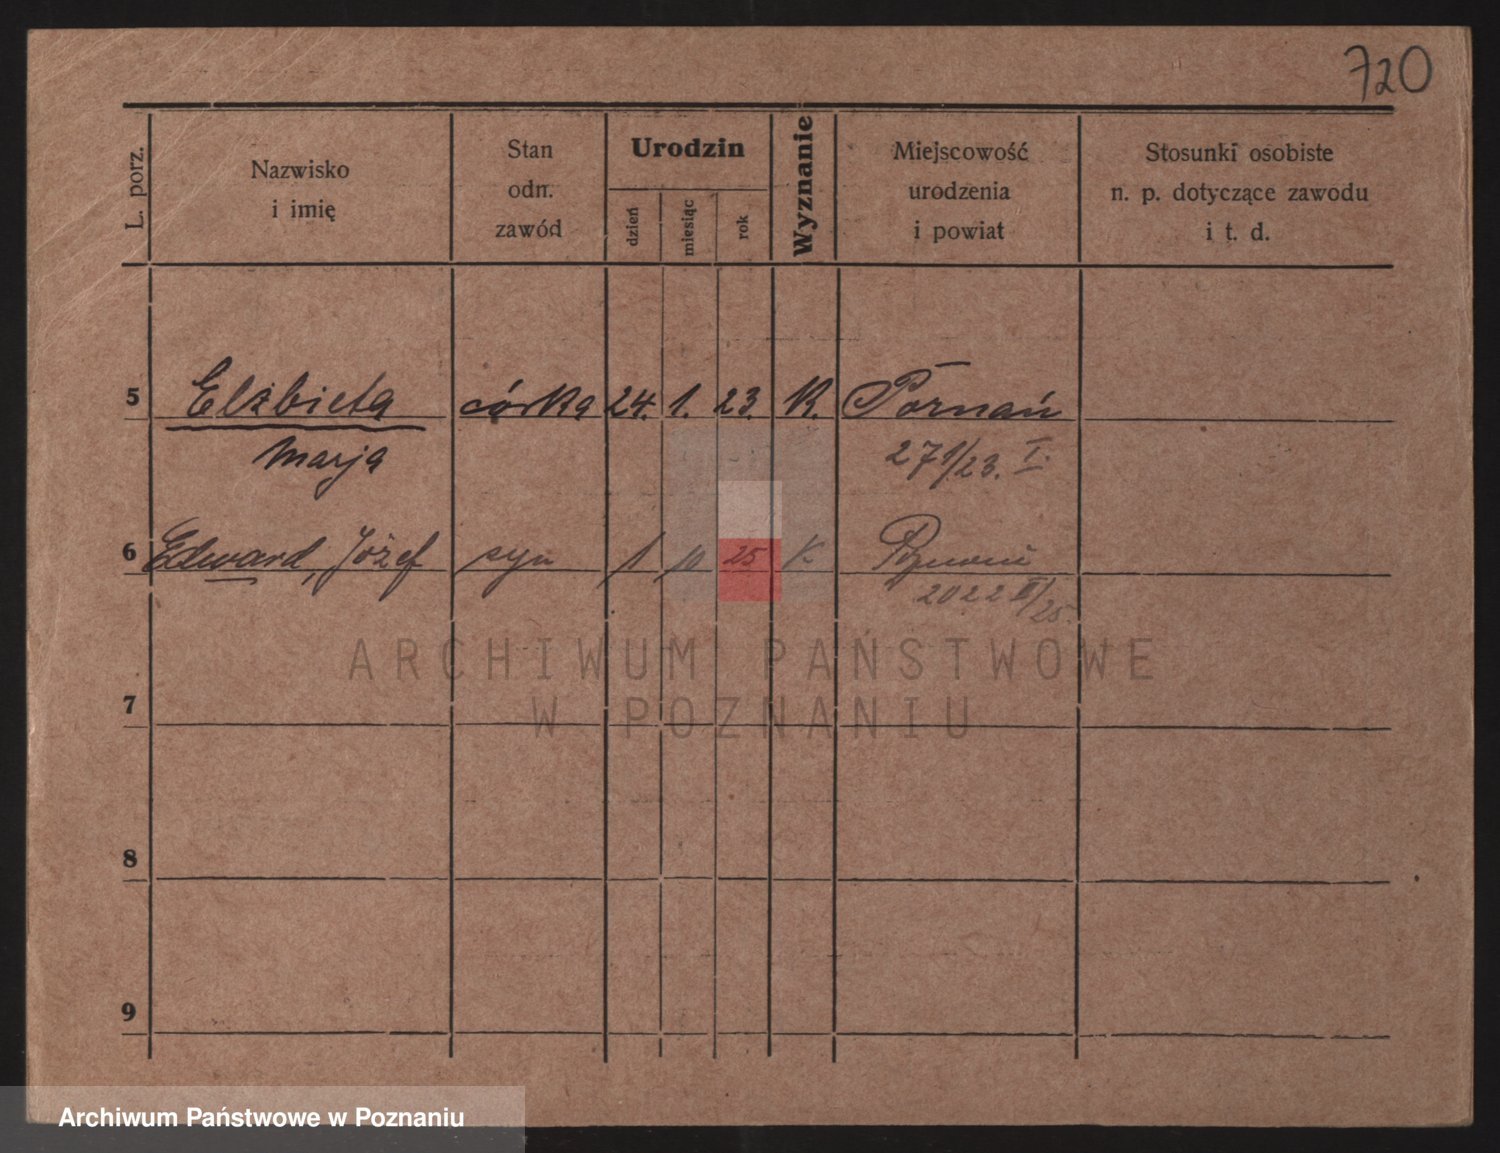 720
L. porz.
Nazwisko
i imię
Stan
odn.
zawód
Urodzin
dzień
miesiąc
rok
Wyznanie
Miejscowość
urodzenia
i powiat
Stosunki osobiste
n. p. dotyczące zawodu
i t. d.
5 Elżbieta córka 24. 1. 23. K. Poznań
Marja 271/23. I.
6 Edward, Józef syn 1 10 25 K Poznań
2022 III/25.
ARCHIWUM PAŃSTWOWE
W POZNANIU
7
8
9
Archiwum Państwowe w Poznaniu